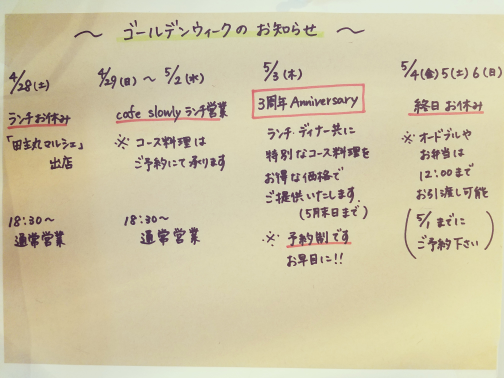 ～ ゴールデンウィークの お知らせ ～
4/28(土)
ランチお休み
「田主丸マルシェ」
出店
18:30～
通常営業
4/29(日) ～ 5/2(水)
cafe slowly ランチ営業
※ コース料理は
ご予約にて承ります
18:30～
通常営業
5/3(木)
3周年 Anniversary
ランチ・ディナー共に
特別なコース料理を
お得な価格で
ご提供いたします。
(5月末日まで)
※ 予約制です
お早目に!!
5/4(金) 5(土) 6(日)
終日お休み
※ オードブルや
お弁当は
12:00まで
お引渡し可能
(5/1までに
ご予約下さい)